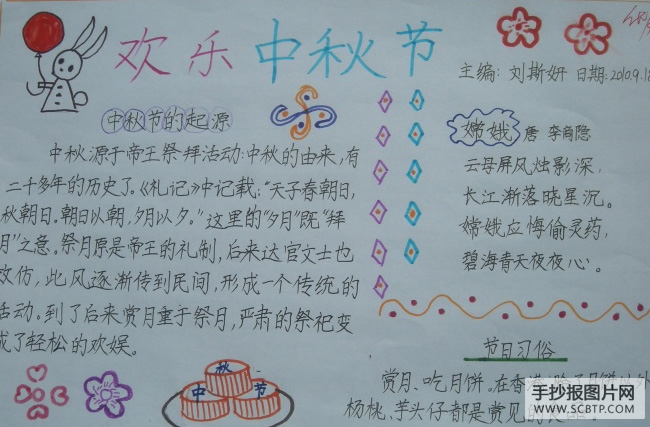 欢乐中秋节
主编:刘斯妍 日期:2010.9.18
中秋节的起源
中秋源于帝王祭拜活动:中秋的由来,有
二千多年的历史了。《礼记》中记载:“天子春朝日,
秋朝日。朝日以朝,夕月以夕。”这里的“夕月”既“拜
月”之意。祭月原是帝王的礼制,后来达官文士也
效仿,此风逐渐传到民间,形成一个传统的
活动。到了后来赏月重于祭月,严肃的祭祀变
成了轻松的欢娱。
嫦娥 唐 李商隐
云母屏风烛影深,
长江渐落晓星沉。
嫦娥应悔偷灵药,
碧海青天夜夜心。
节日习俗
赏月、吃月饼.在香港
杨桃,芋头仔都是赏见的
中 秋 节
手抄报图片网
WWW.SCBTP.COM